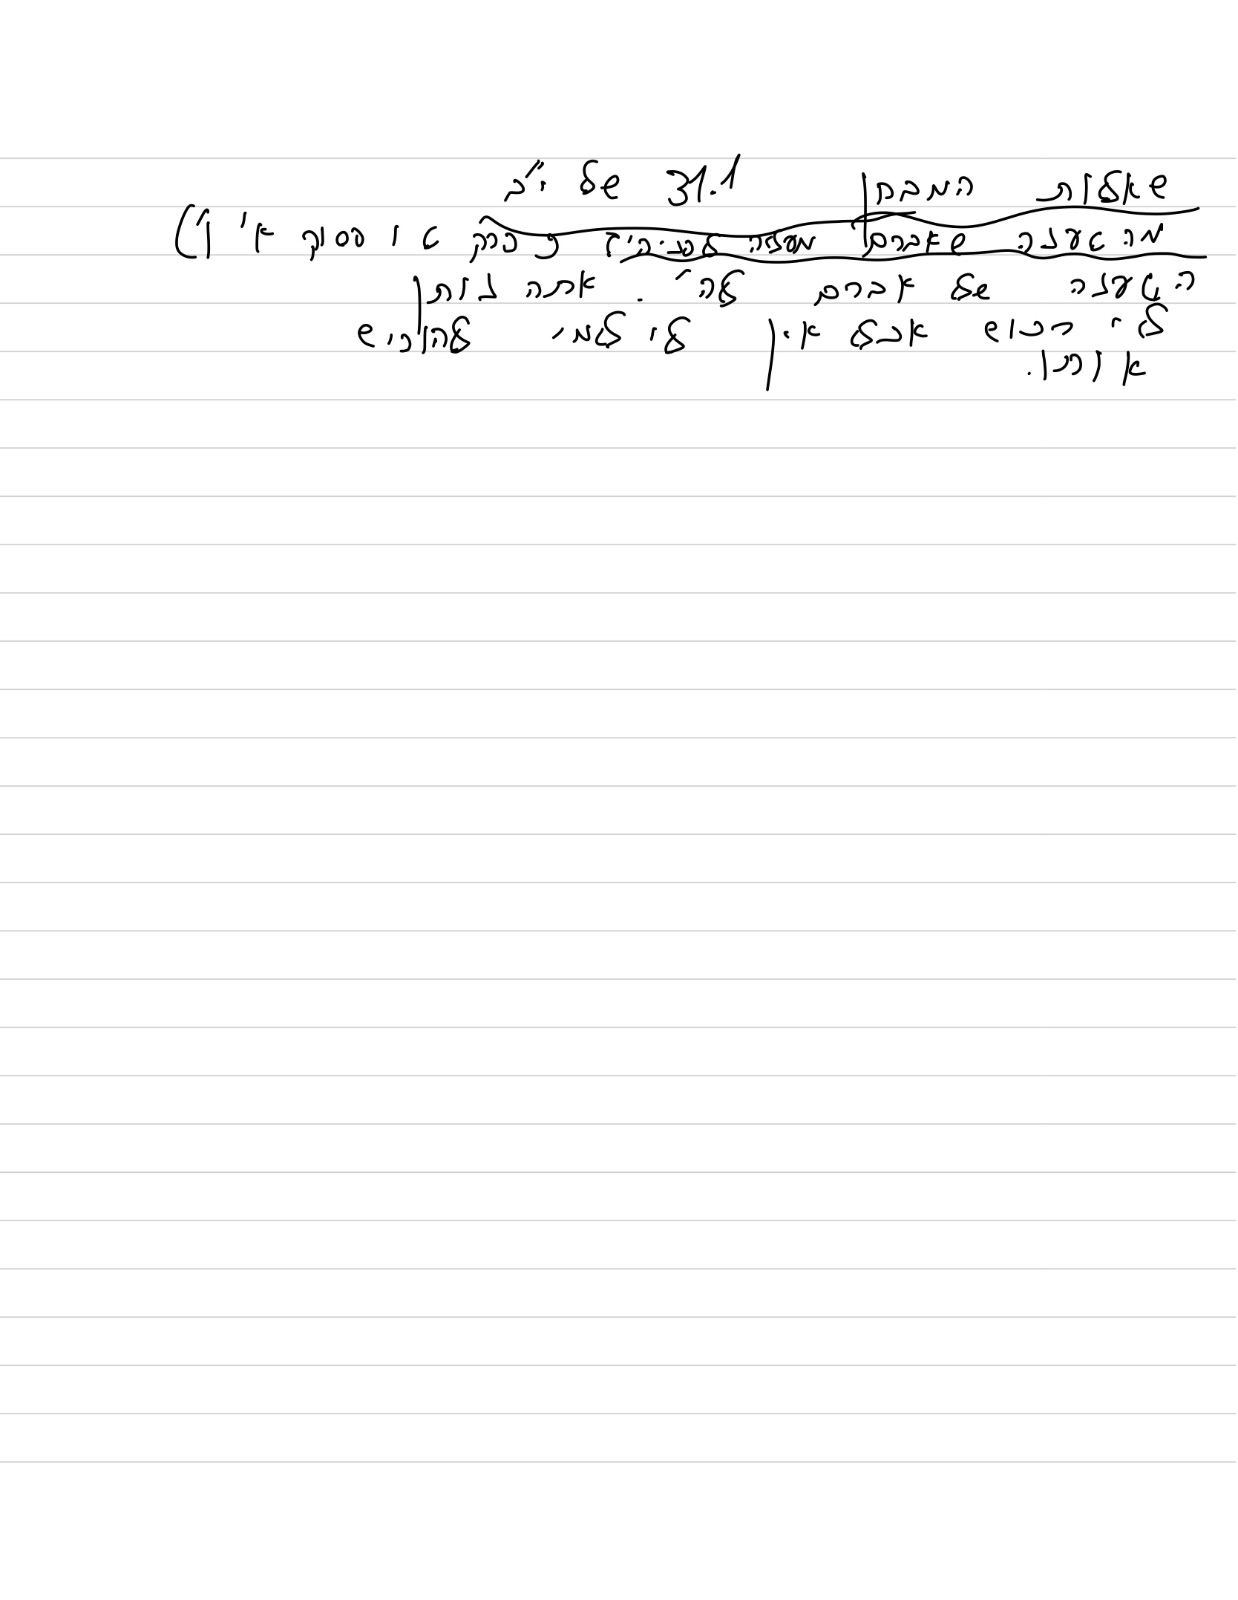 שאלות המבחן 31.1 של י"ב
מה טענה שאברם מעלה לפני ה' ? פרק ט ו פסוק א' ו')
הטענה של אברם לה'. אתה נותן
לי רכוש אבל אין לי למי להוריש
אותו.